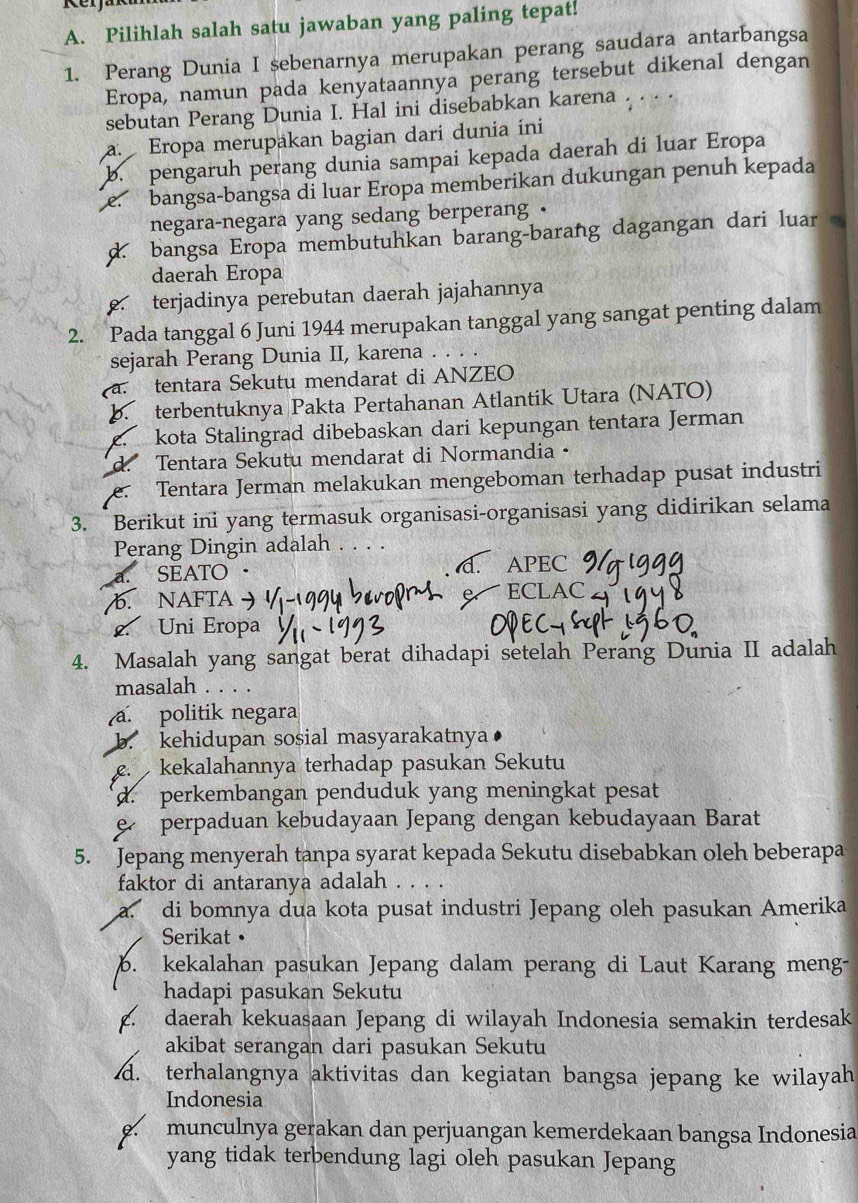 A. Pilihlah salah satu jawaban yang paling tepat!
1. Perang Dunia I sebenarnya merupakan perang saudara antarbangsa
Eropa, namun pada kenyataannya perang tersebut dikenal dengan
sebutan Perang Dunia I. Hal ini disebabkan karena . . . .
a. Eropa merupakan bagian dari dunia ini
b. pengaruh perang dunia sampai kepada daerah di luar Eropa
c. bangsa-bangsa di luar Eropa memberikan dukungan penuh kepada
negara-negara yang sedang berperang
d. bangsa Eropa membutuhkan barang-barang dagangan dari luar
daerah Eropa
e. terjadinya perebutan daerah jajahannya
2. Pada tanggal 6 Juni 1944 merupakan tanggal yang sangat penting dalam
sejarah Perang Dunia II, karena . . . .
a. tentara Sekutu mendarat di ANZEO
b. terbentuknya Pakta Pertahanan Atlantik Utara (NATO)
c. kota Stalingrad dibebaskan dari kepungan tentara Jerman
d. Tentara Sekutu mendarat di Normandia
e. Tentara Jerman melakukan mengeboman terhadap pusat industri
3. Berikut ini yang termasuk organisasi-organisasi yang didirikan selama
Perang Dingin adalah . . . .
a. SEATO
d. APEC 9/9 1999
b. NAFTA → 1/1-1994
e. ECLAC → 1948
c. Uni Eropa 1/11-1993
OPEC → Sept 1960.
4. Masalah yang sangat berat dihadapi setelah Perang Dunia II adalah
masalah . . . .
a. politik negara
b. kehidupan sosial masyarakatnya
c. kekalahannya terhadap pasukan Sekutu
d. perkembangan penduduk yang meningkat pesat
e. perpaduan kebudayaan Jepang dengan kebudayaan Barat
5. Jepang menyerah tanpa syarat kepada Sekutu disebabkan oleh beberapa
faktor di antaranya adalah . . . .
a. di bomnya dua kota pusat industri Jepang oleh pasukan Amerika
Serikat
b. kekalahan pasukan Jepang dalam perang di Laut Karang meng-
hadapi pasukan Sekutu
c. daerah kekuasaan Jepang di wilayah Indonesia semakin terdesak
akibat serangan dari pasukan Sekutu
d. terhalangnya aktivitas dan kegiatan bangsa jepang ke wilayah
Indonesia
e. munculnya gerakan dan perjuangan kemerdekaan bangsa Indonesia
yang tidak terbendung lagi oleh pasukan Jepang